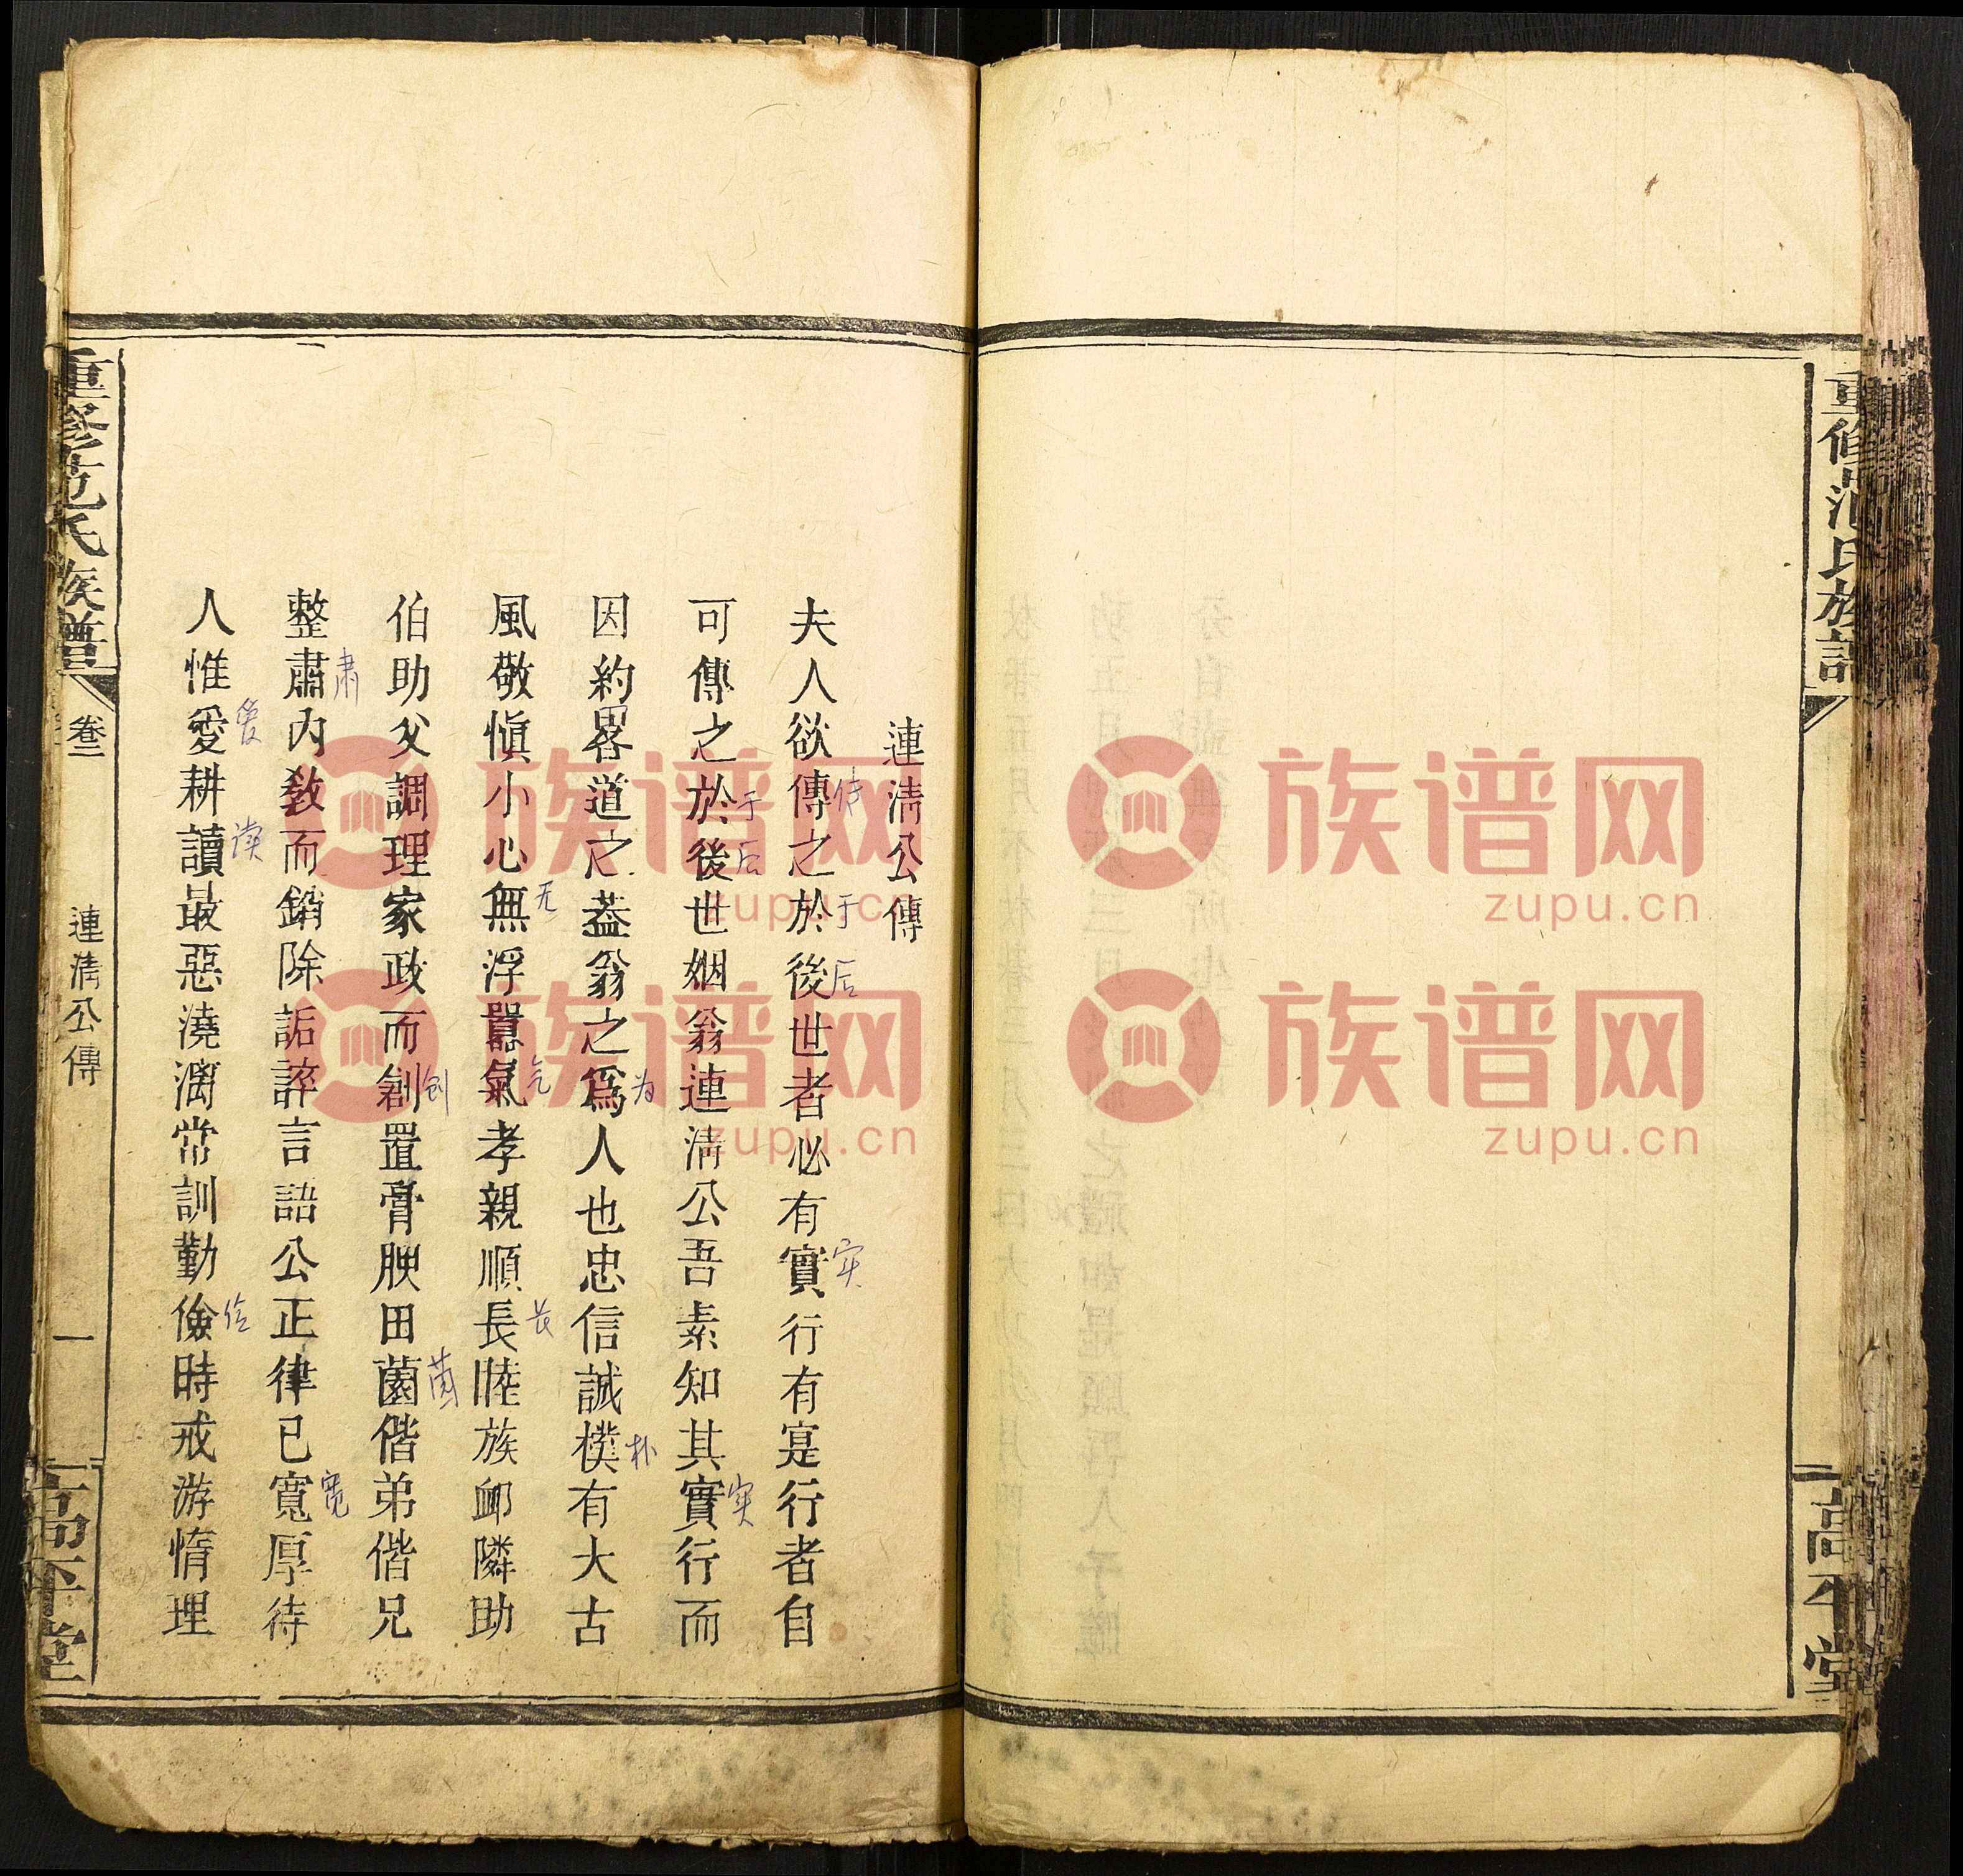 重修范氏族譜
高平堂
連淸公傳
夫人欲傳之於後世者必有實行有寔行者自
可傳之於後世姻翁連淸公吾素知其實行而
因約畧道之葢翁之爲人也忠信誠樸有大古
風敬愼小心無浮囂氣孝親順長睦族邮隣助
伯助父調理家政而創置膏腴田園偕弟偕兄
整肅內敎而銷除詬誶言語公正律已寬厚待
人惟愛耕讀最惡澆漓常訓勤儉時戒游惰理
传
于
后
实
于
后
实
为
朴
无
气
长
创
肃
宽
爱
读
俭
重修范氏族譜
卷二
連淸公傳
一
高平堂
族谱网
zupu.cn
族谱网
zupu.cn
族谱网
zupu.cn
族谱网
zupu.cn